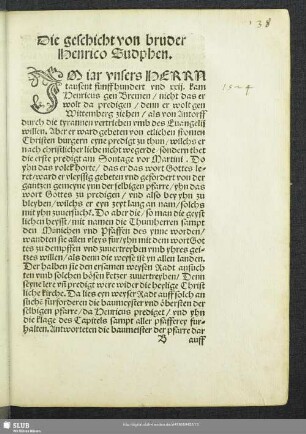 138
Die geschicht von bruder
Henrico Sudphen.
IM iar vnsers HERRN
tausent fünffhundert vnd xxij. kam
Henricus gen Bremen / nicht das er
wolt da predigen / denn er wolt gen
Wittemberg zihen / als von Antorff
durch die tyrannen vertrieben vmb des Euangelij
willen. Aber er ward gebeten von etlichen fromen
Christen burgern eyne predigt zu thun / wilchs er
nach christlicher liebe nicht wegerde / sondern thet die
erste predigt am Sontage vor Martini. Do
yhn das volck horte / das er das wort Gottes le-
ret / ward er vleyssig gebeten vnd gefordert von der
gantzen gemeyne ynn der selbigen pfarre / yhn das
wort Gottes zu predigen / vnd also bey yhn zu
bleyben / wilchs er eyn zeyt lang an nam / solchs
mit yhn zuuersucht. Do aber die / so man die geyst
lichen heysst / mit namen die Thumherren sampt
den Monichen vnd Pfaffen des ynne worden /
wandten sie allen vleys fur / yhn mit dem wort Got
tes zu dempffen vnd zuuertreyben vmb yhres gei-
tzes willen / als denn die weyse ist yn allen landen.
Der halben sie den ersamen weysen Radt ansuch
ten vmb solchen bösen ketzer zuuertreyben / Denn
seyne lere vnd predigt were wider die heylige Christ
liche kirche. Da lies eyn weyser Radt auff solch an
suchs fürforderen die baumeyster vnd öbersten der
selbigen pfarre / da Henricus prediget / vnd yhn
die klage des Capitels sampt aller pfafferey fur-
halten. Antworteten die baumeister der pfarre dar
B auff
SLUB